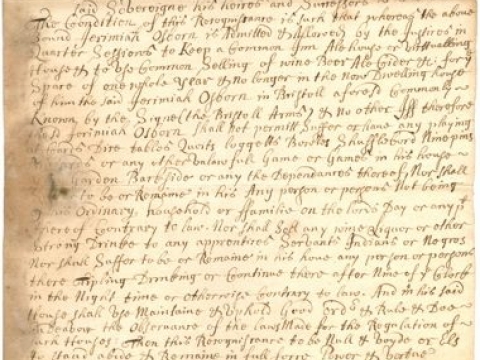 said Sovereigne his heires and Successors
The Condition of this Recognisance is such that whereas the above
bound Jerimiah Osborn is Admitted & Allowed by the Justices in
Quarter Sessions to Keep a Common Inn Ale house or Victualling
House & to use Common Selling of wine Beer Ale Cider &c: for y
Space of one whole year & no longer in the now Dwelling house
of him the said Jerimiah Osborn in Bristoll aforesd Commonly
Known by the Signe (the Bristoll Arms) & no other If therefore
the sd Jerimiah Osborn shall not permitt Suffer or have any playing
at Cards Dice tables Quoits loggetts Bowles Shuffleboard Ninepins
Billiards or any other unlawfull Game or Games in his house
Garden Backside or any the Dependances thereof Nor shall
to be or Remaine in his Any person or persons Not being
of his Ordinary household or ffamilie on the lords Day or any pt
thereof Contrary to law Nor shall Sell any wine Liquor or other
Strong Drinke to any apprentices Servants Indians or Negros
Nor shall Suffer to be or Remaine in his house any person or persons
there Tipling Drinking or Continue there after Nine of ye Clock
in the Night time or otherwise Contrary to law. And in his said
House shall Use Maintaine & Uphold Good ordr & Rule & Doe
Endeavor the Observance of the laws Made for the Regulation of
such Houses Then this Recognisance to be Null & voyde or Els
to stand abide & Remaine in full force Power & Vertue